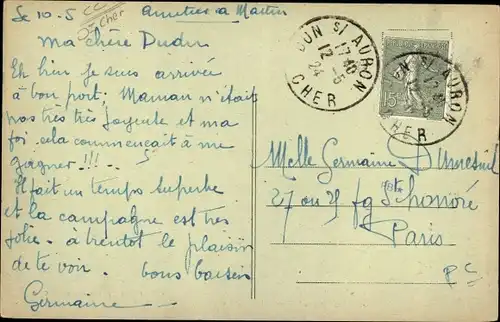 le 10-5 Amitiés à
Cher
Ma chère Dudu
Eh bien je suis arrivée
à bon port; Maman n'était
pas très très joyeuse et ma
foi cela commençait à me
gagner!!! -
Il fait un temps superbe
et la campagne est très
jolie. à bientôt le plaisir
de te voir. bons baisers
Germaine
DUN S/ AURON
17 40
12 -5
24
CHER
15
UN S/ AURON
17
HER
Melle Germaine Dumesnil
27 ou 29 fg St honoré
Paris
PC